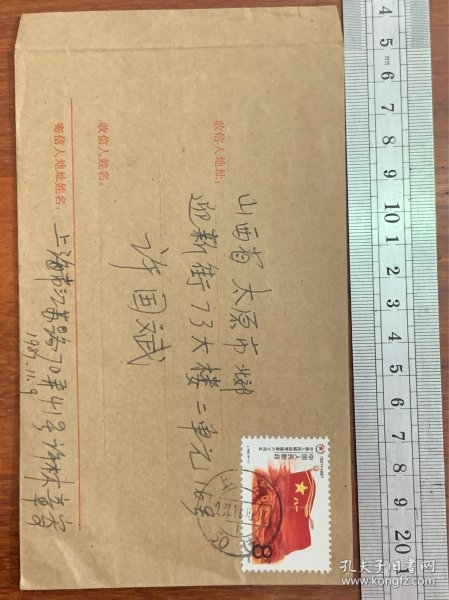 收信人地址：
山西省太原市北郊
迎新街73大楼二单元16号
收信人姓名：
许国斌
寄信人地址姓名：
上海市江苏路70弄41号许林
1987.11.9
中国人民邮政
8
4 5 6 7 8 9 10 1 2 3 4 5 6 7 8 9 20 1
孔夫子旧书网
kongfz.com